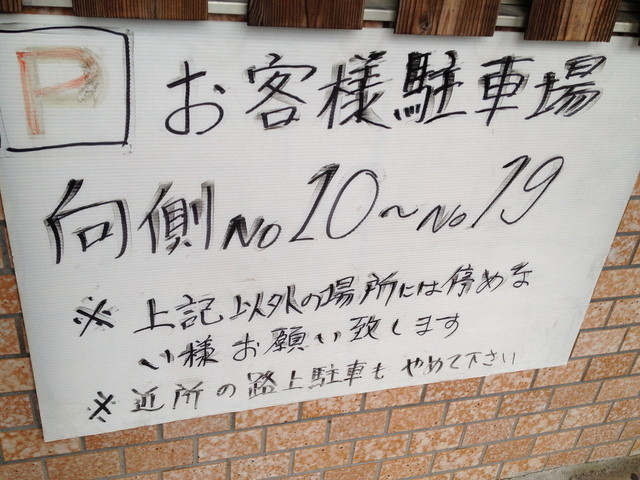 P お客様駐車場
向側No10～No19
※ 上記以外の場所には停めな
い様お願い致します
※近所の路上駐車もやめて下さい